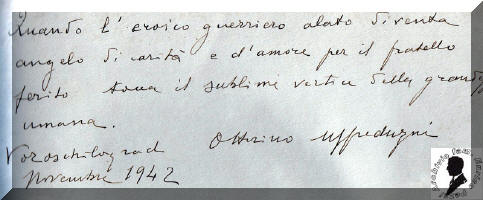 Quando l'eroico guerriero alato diventa
angelo di carità e d'amore per il fratello
ferito tocca il sublime vertice della grandezza
umana.
Ottorino
Voroschilograd
Novembre 1942